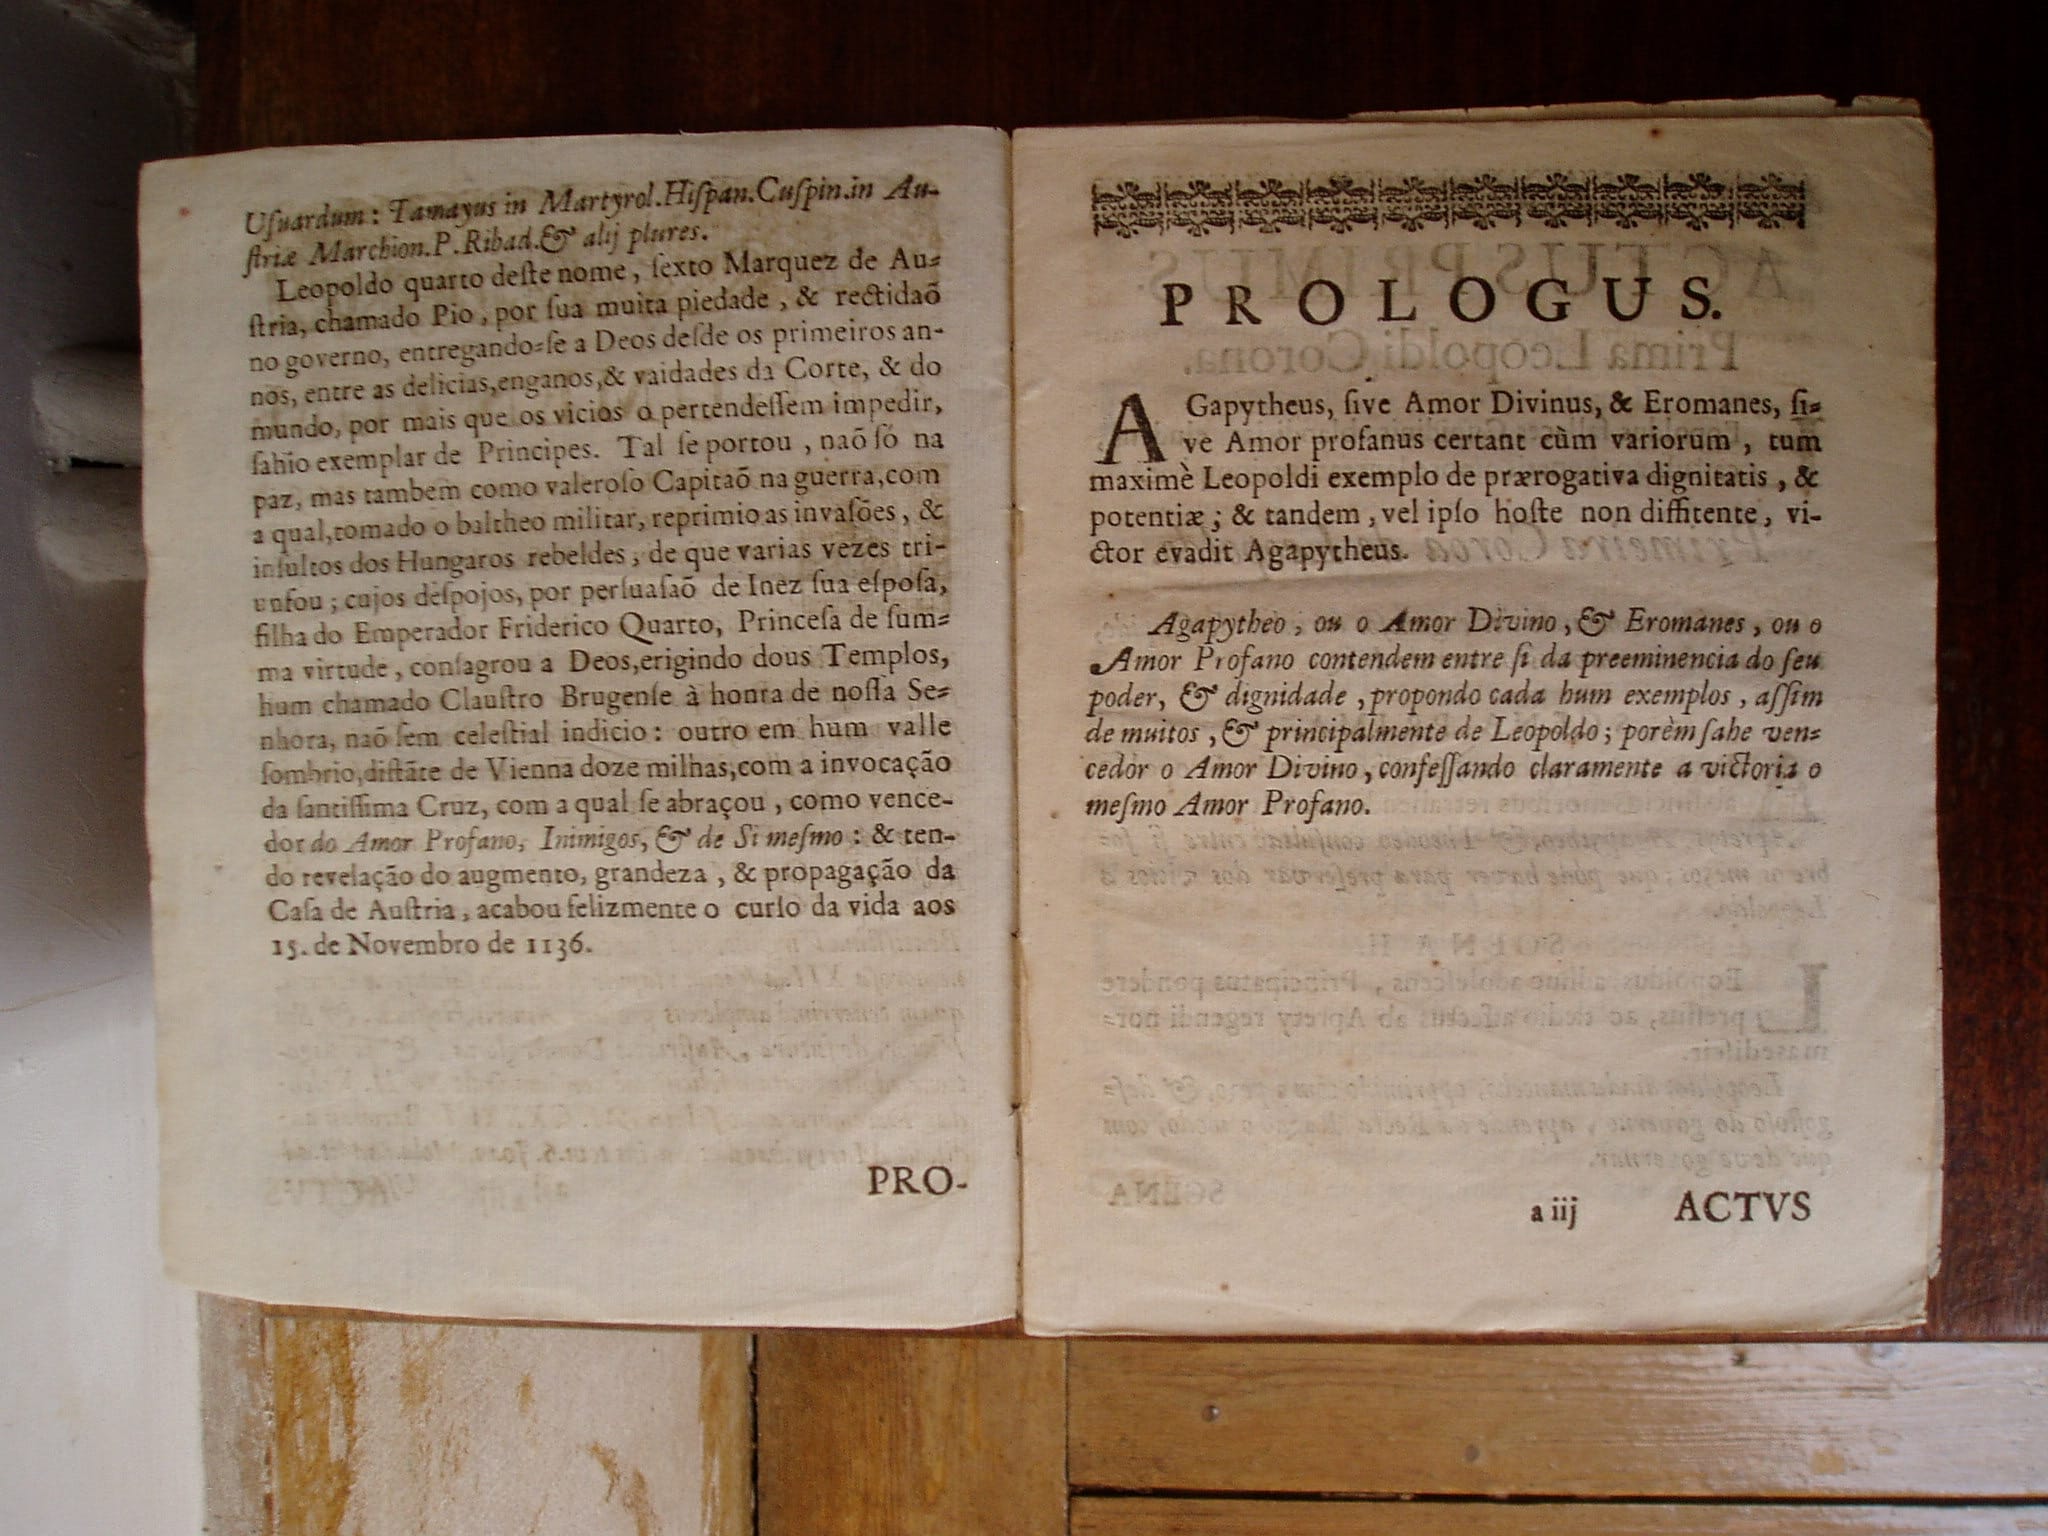 Uſuardum: Tamayus in Martyrol.Hiſpan.Cuſpin.in Au-
ſtriæ Marchion.P.Ribad.& alij plures.
Leopoldo quarto deſte nome, ſexto Marquez de Au-
ſtria, chamado Pio, por ſua muita piedade, & rectidaõ
no governo, entregando-ſe a Deos deſde os primeiros an-
nos, entre as delicias,enganos,& vaidades da Corte, & do
mundo, por mais que os vicios o pertendeſſem impedir,
ſahio exemplar de Principes. Tal ſe portou, naõ ſó na
paz, mas tambem como valeroſo Capitaõ na guerra,com
a qual,tomado o baltheo militar, reprimio as invaſões, &
inſultos dos Hungaros rebeldes, de que varias vezes tri-
unfou; cujos deſpojos, por perſuaſaõ de Inez ſua eſpoſa,
filha do Emperador Friderico Quarto, Princeſa de ſum-
ma virtude, conſagrou a Deos,erigindo dous Templos,
hum chamado Clauſtro Brugenſe à honra de noſſa Se-
nhora, naõ ſem celeſtial indicio: outro em hum valle
ſombrio,diſtãte de Vienna doze milhas,com a invocação
da ſantiſſima Cruz, com a qual ſe abraçou, como vence-
dor do Amor Profano, Inimigos, & de Si meſmo: & ten-
do revelação do augmento, grandeza, & propagação da
Caſa de Auſtria, acabou felizmente o curſo da vida aos
15. de Novembro de 1136.
PRO-
PROLOGUS.
AGapytheus, ſive Amor Divinus, & Eromanes, ſi-
ve Amor profanus certant cùm variorum, tum
maximè Leopoldi exemplo de prærogativa dignitatis, &
potentiæ; & tandem, vel ipſo hoſte non diffitente, vi-
ctor evadit Agapytheus.
Agapytheo, ou o Amor Divino, & Eromanes, ou o
Amor Profano contendem entre ſi da preeminencia do ſeu
poder, & dignidade, propondo cada hum exemplos, aſſim
de muitos, & principalmente de Leopoldo; porèm ſahe ven-
cedor o Amor Divino, confeſſando claramente a victoria o
meſmo Amor Profano.
a iij ACTVS